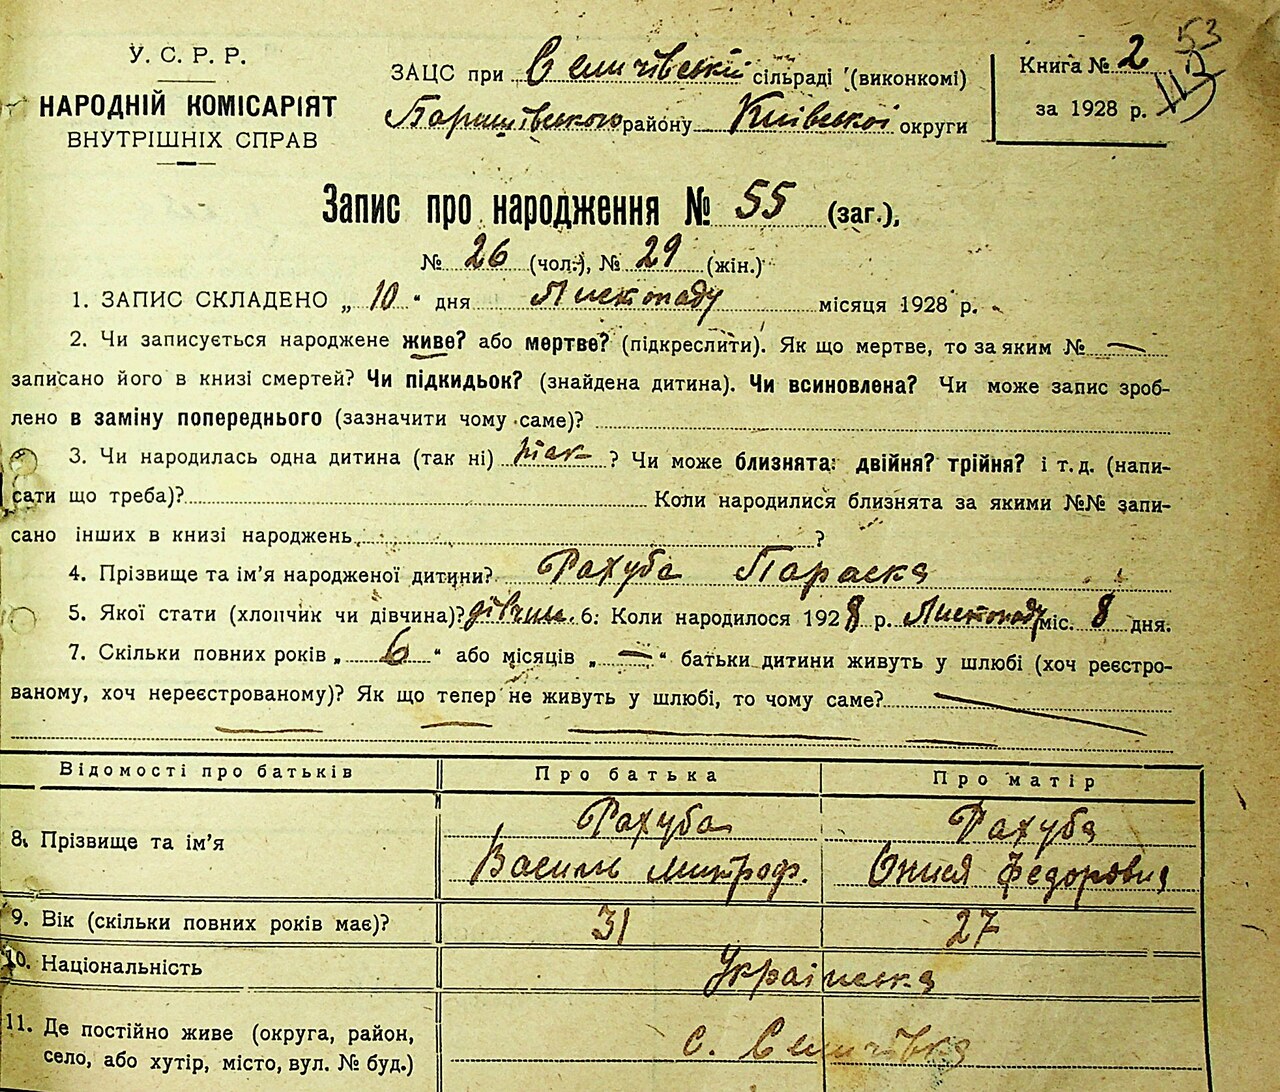 У. С. Р. Р.
НАРОДНІЙ КОМІСАРІЯТ
ВНУТРІШНІХ СПРАВ
ЗАЦС при Семичівській сільраді (виконкомі)
Баришівського району Київської округи
Книга № 2
за 1928 р.
53
Запис про народження № 55 (заг.),
№ 26 (чол.), № 29 (жін.)
1. ЗАПИС СКЛАДЕНО „ 10 “ дня Листопаду місяця 1928 р.
2. Чи записується народжене живе? або мертве? (підкреслити). Як що мертве, то за яким № —
записано його в книзі смертей? Чи підкидьок? (знайдена дитина). Чи всиновлена? Чи може запис зроб-
лено в заміну попереднього (зазначити чому саме)?
3. Чи народилась одна дитина (так ні) так ? Чи може близнята: двійня? трійня? і т. д. (напи-
сати що треба)? Коли народилися близнята за якими №№ запи-
сано інших в книзі народжень ?
4. Прізвище та ім’я народженої дитини? Рахуба Параска
5. Якої стати (хлопчик чи дівчина)? дівчин. 6: Коли народилося 1928 р. Листопаду міс. 8 дня.
7. Скільки повних років „ 6 “ або місяців „ — “ батьки дитини живуть у шлюбі (хоч реєстро-
ваному, хоч нереєстрованому)? Як що тепер не живуть у шлюбі, то чому саме?
Відомості про батьків Про батька Про матір
8. Прізвище та ім’я Рахуба Рахуба
Василь Митроф. Онися Федоровна
9. Вік (скільки повних років має)? 31 27
10. Національність Українська
11. Де постійно живе (округа, район,
село, або хутір, місто, вул. № буд.) с. Семичівка